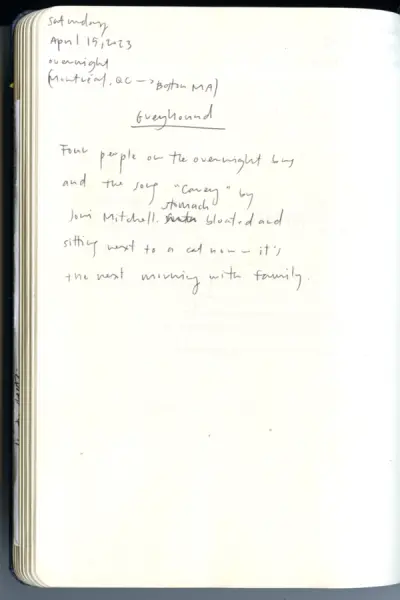 Saturday
April 15, 2023
overnight
(Montreal, QC -> Boston MA)
Greyhound
Four people on the overnight bus
and the song "Carey" by
stomach
Joni Mitchell. bloated and
sitting next to a cat now - it's
the next morning with family.